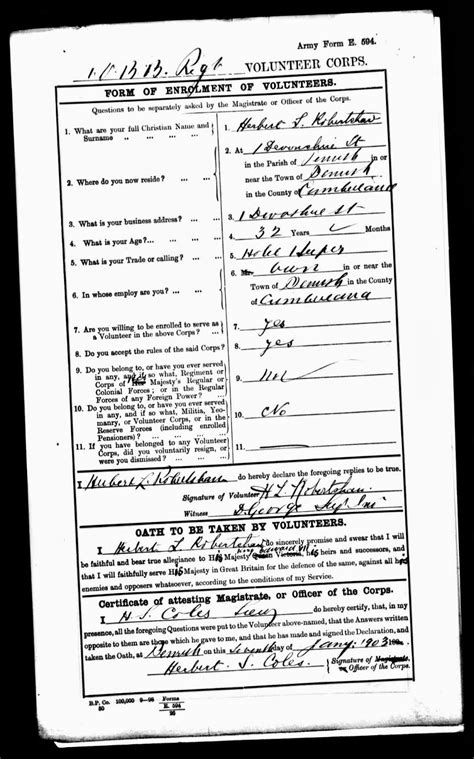 Army Form E. 594.
1. V. B. B. Regt VOLUNTEER CORPS.
FORM OF ENROLMENT OF VOLUNTEERS.
Questions to be separately asked by the Magistrate or Officer of the Corps.
1. What are your full Christian Name and
Surname
1. Herbert L. Robertshaw
2. Where do you now reside?
2. At 1 Devonshire St
in the Parish of in or
near the Town of
in the County of Cumberland
3. What is your business address?
3. 1 Devonshire St
4. What is your Age?
4. 32 Years Months
5. What is your Trade or calling?
5. Hotel Keeper
6. In whose employ are you?
6. Mr. own in or near the
Town of in the County
of Cumberland
7. Are you willing to be enrolled to serve as
a Volunteer in the above Corps?
7. yes
8. Do you accept the rules of the said Corps?
8. yes
9. Do you belong to, or have you ever served
in any, and if so what, Regiment or
Corps of His Majesty's Regular or
Colonial Forces; or in the Regular
Forces of any Foreign Power?
9.
10. Do you belong to, or have you ever served
in any, and if so, what, Militia, Yeo-
manry, or Volunteer Corps, or in the
Reserve Forces (including enrolled
Pensioners)?
10. No
11. If you have belonged to any Volunteer
Corps, did you voluntarily resign, or
were you dismissed?
11.
I Herbert L. Robertshaw do hereby declare the foregoing replies to be true.
Signature of Volunteer H L Robertshaw
Witness D. George
OATH TO BE TAKEN BY VOLUNTEERS.
I Herbert L Robertshaw do sincerely promise and swear that I will
be faithful and bear true allegiance to His Majesty King Edward VII Queen Victoria, his heirs and successors, and
that I will faithfully serve His Majesty in Great Britain for the defence of the same, against all her
enemies and opposers whatsoever, according to the conditions of my Service.
Certificate of attesting Magistrate, or Officer of the Corps.
I H. S. Coles Lieut do hereby certify, that, in my
presence, all the foregoing Questions were put to the Volunteer above-named, that the Answers written
opposite to them are those which he gave to me, and that he has made and signed the Declaration, and
taken the Oath, at on this Seventh day of Jany. 1903
Herbert S. Coles. Signature of Magistrate,
or Officer of the Corps.
B.P. Co. 100,000 9—98
50
Forms
E. 594